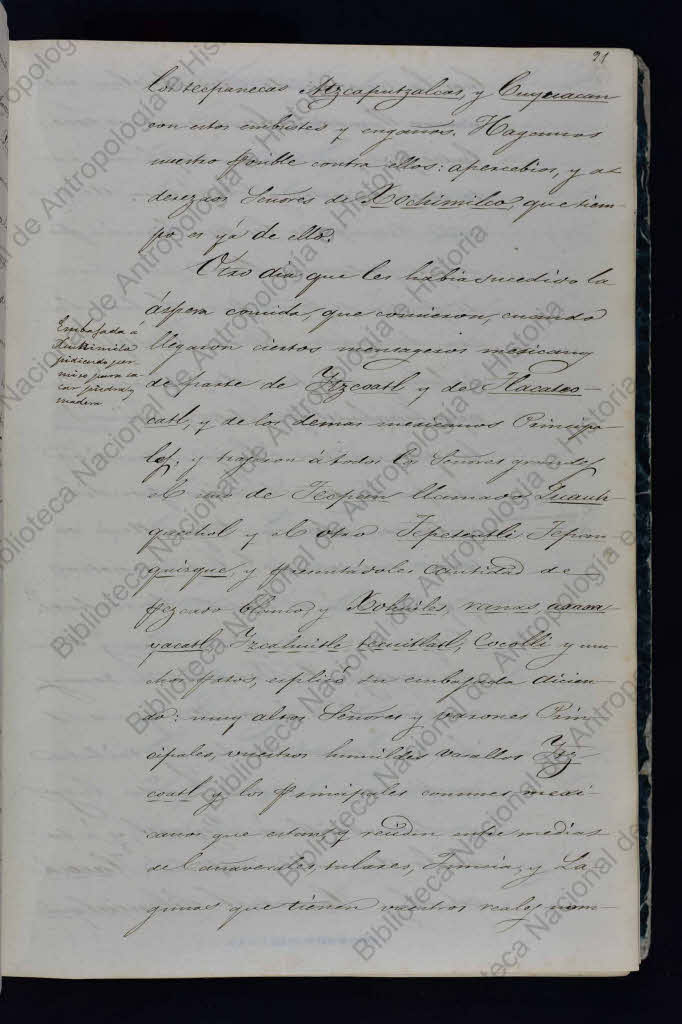 21
los tecpanecas Atzcaputzalcas, y Cuyuacan
con estos embustes y engaños. Hagamos
nuestro posible contra ellos: apercebios, y a-
derezaos Señores de Xochimilco, que tiem-
po es yá de ello.
Otro dia que les había sucedido la
áspera comida, que comieron, cuando
llegaron ciertos mensageros mexicanos
de parte de Ytzcoatl y de Tlacateo-
catl, y de los demas mexicanos Principa-
les, y á todos los Señores grandes
el uno de Tecpan llamado Quauh-
quechol y el otro Tepetentli Tepan-
quizque, y presentádoles cantidad de
pezcado blanco, y Xohuiles, ranas, axaxa-
yacatl, Yzcahuitle tecuitlatl, Cocolli y mu-
chos patos, esplicó su embajada dicien-
do: muy altos Señores y varones Prin-
cipales, vuestros humildes vasallos Ytz-
coatl y los principales comunes mexi-
canos que estan y residen entre medias
de Cañaverales, tulares, Juncia, y La-
gunas que tienen vuestros reales nom-
Embajada á
Xuchimilco
pidiendo per-
miso para sa-
car piedra y
madera
Biblioteca Nacional de Antropología e Historia